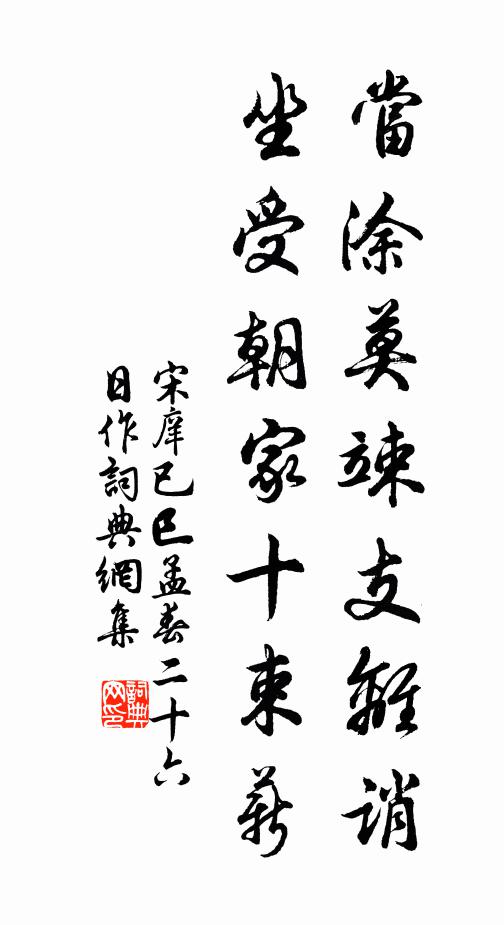 當涂莫竦支離誚
坐受朝家十束薪
宋庠己巳孟春二十六
日作詞典網集
詞典
网印